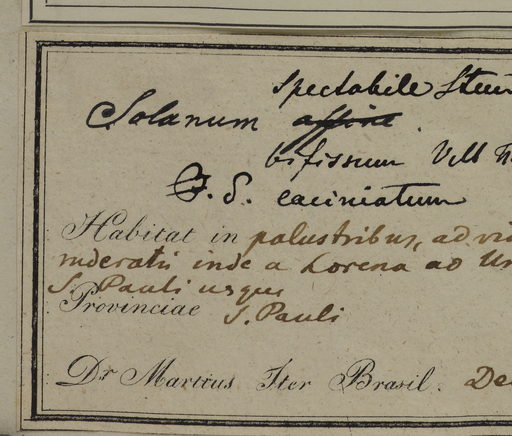 spectabile Steu
Solanum affine.
bifissum Vell
F. S. laciniatum
Habitat in palustribus, ad vi
inde a Lorena ad Ur
S. Pauli usque
Provinciae S. Pauli
Dr Martius Iter Brasil. De